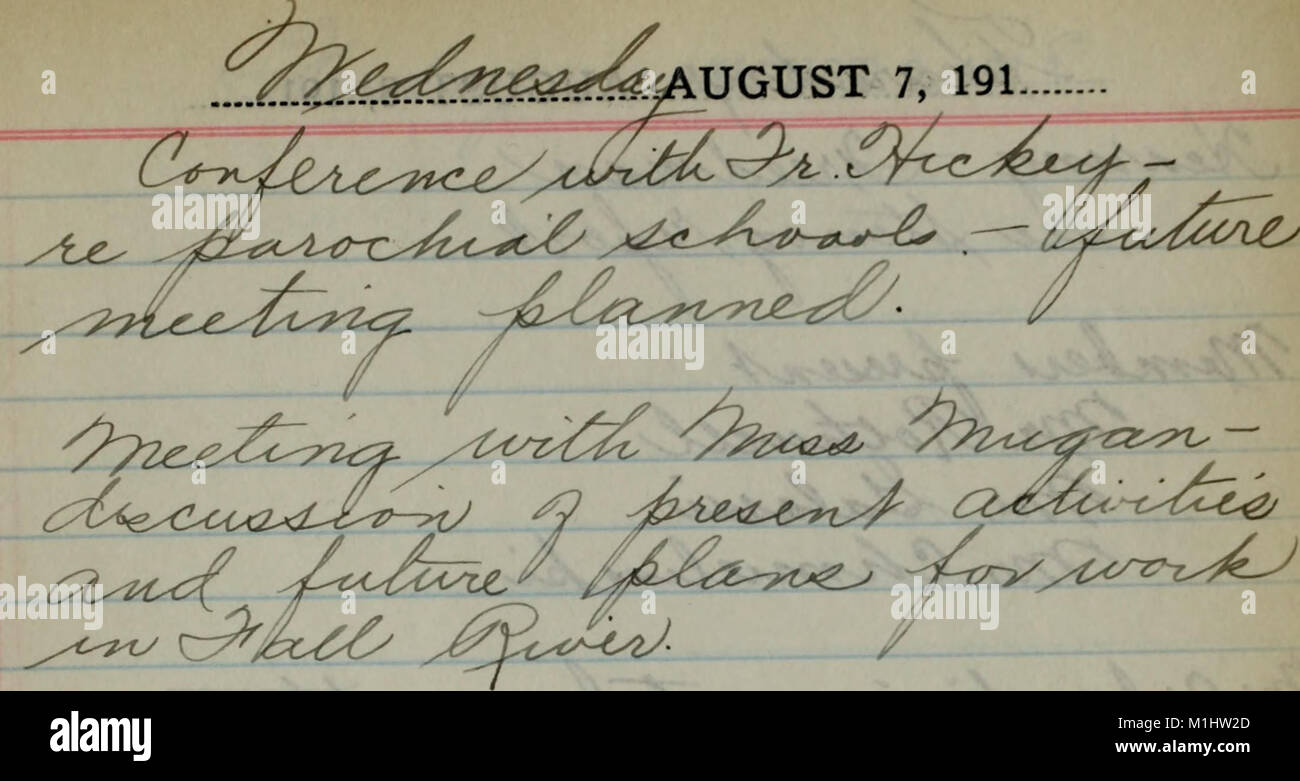 Wednesday AUGUST 7, 191
Conference with Fr. Hickey –
re parochial schools – future
meeting planned.
Meeting with Miss Mugan –
discussion of present activities
and future plans for work
in Fall River.
alamy
Image ID: M1HW2D
www.alamy.com